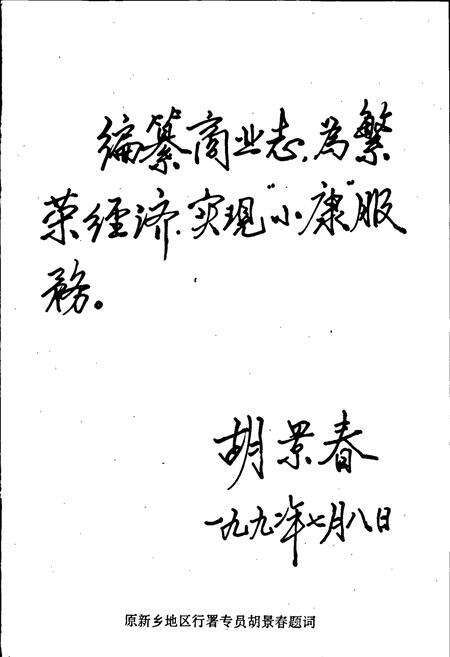 编纂商业志、為繁
荣经济、实现"小康"服
务。
胡景春
一九九〇年七月八日
原新乡地区行署专员胡景春题词